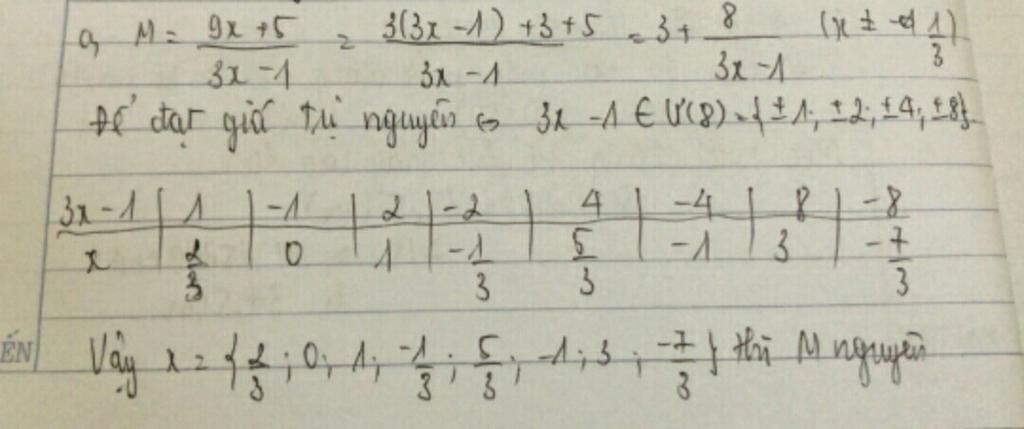 a, M = \frac{9x+5}{3x-1} = \frac{3(3x-1)+3+5}{3x-1} = 3 + \frac{8}{3x-1} (x ≠ \frac{1}{3})
Để đạt giá trị nguyên ⇔ 3x - 1 ∈ Ư(8) = {±1; ±2; ±4; ±8}
3x-1 | 1 | -1 | 2 | -2 | 4 | -4 | 8 | -8
x | \frac{2}{3} | 0 | 1 | -\frac{1}{3} | \frac{5}{3} | -1 | 3 | -\frac{7}{3}
ẾN
Vậy x = {\frac{2}{3}; 0; 1; \frac{-1}{3}; \frac{5}{3}; -1; 3; \frac{-7}{3}} thì M nguyên